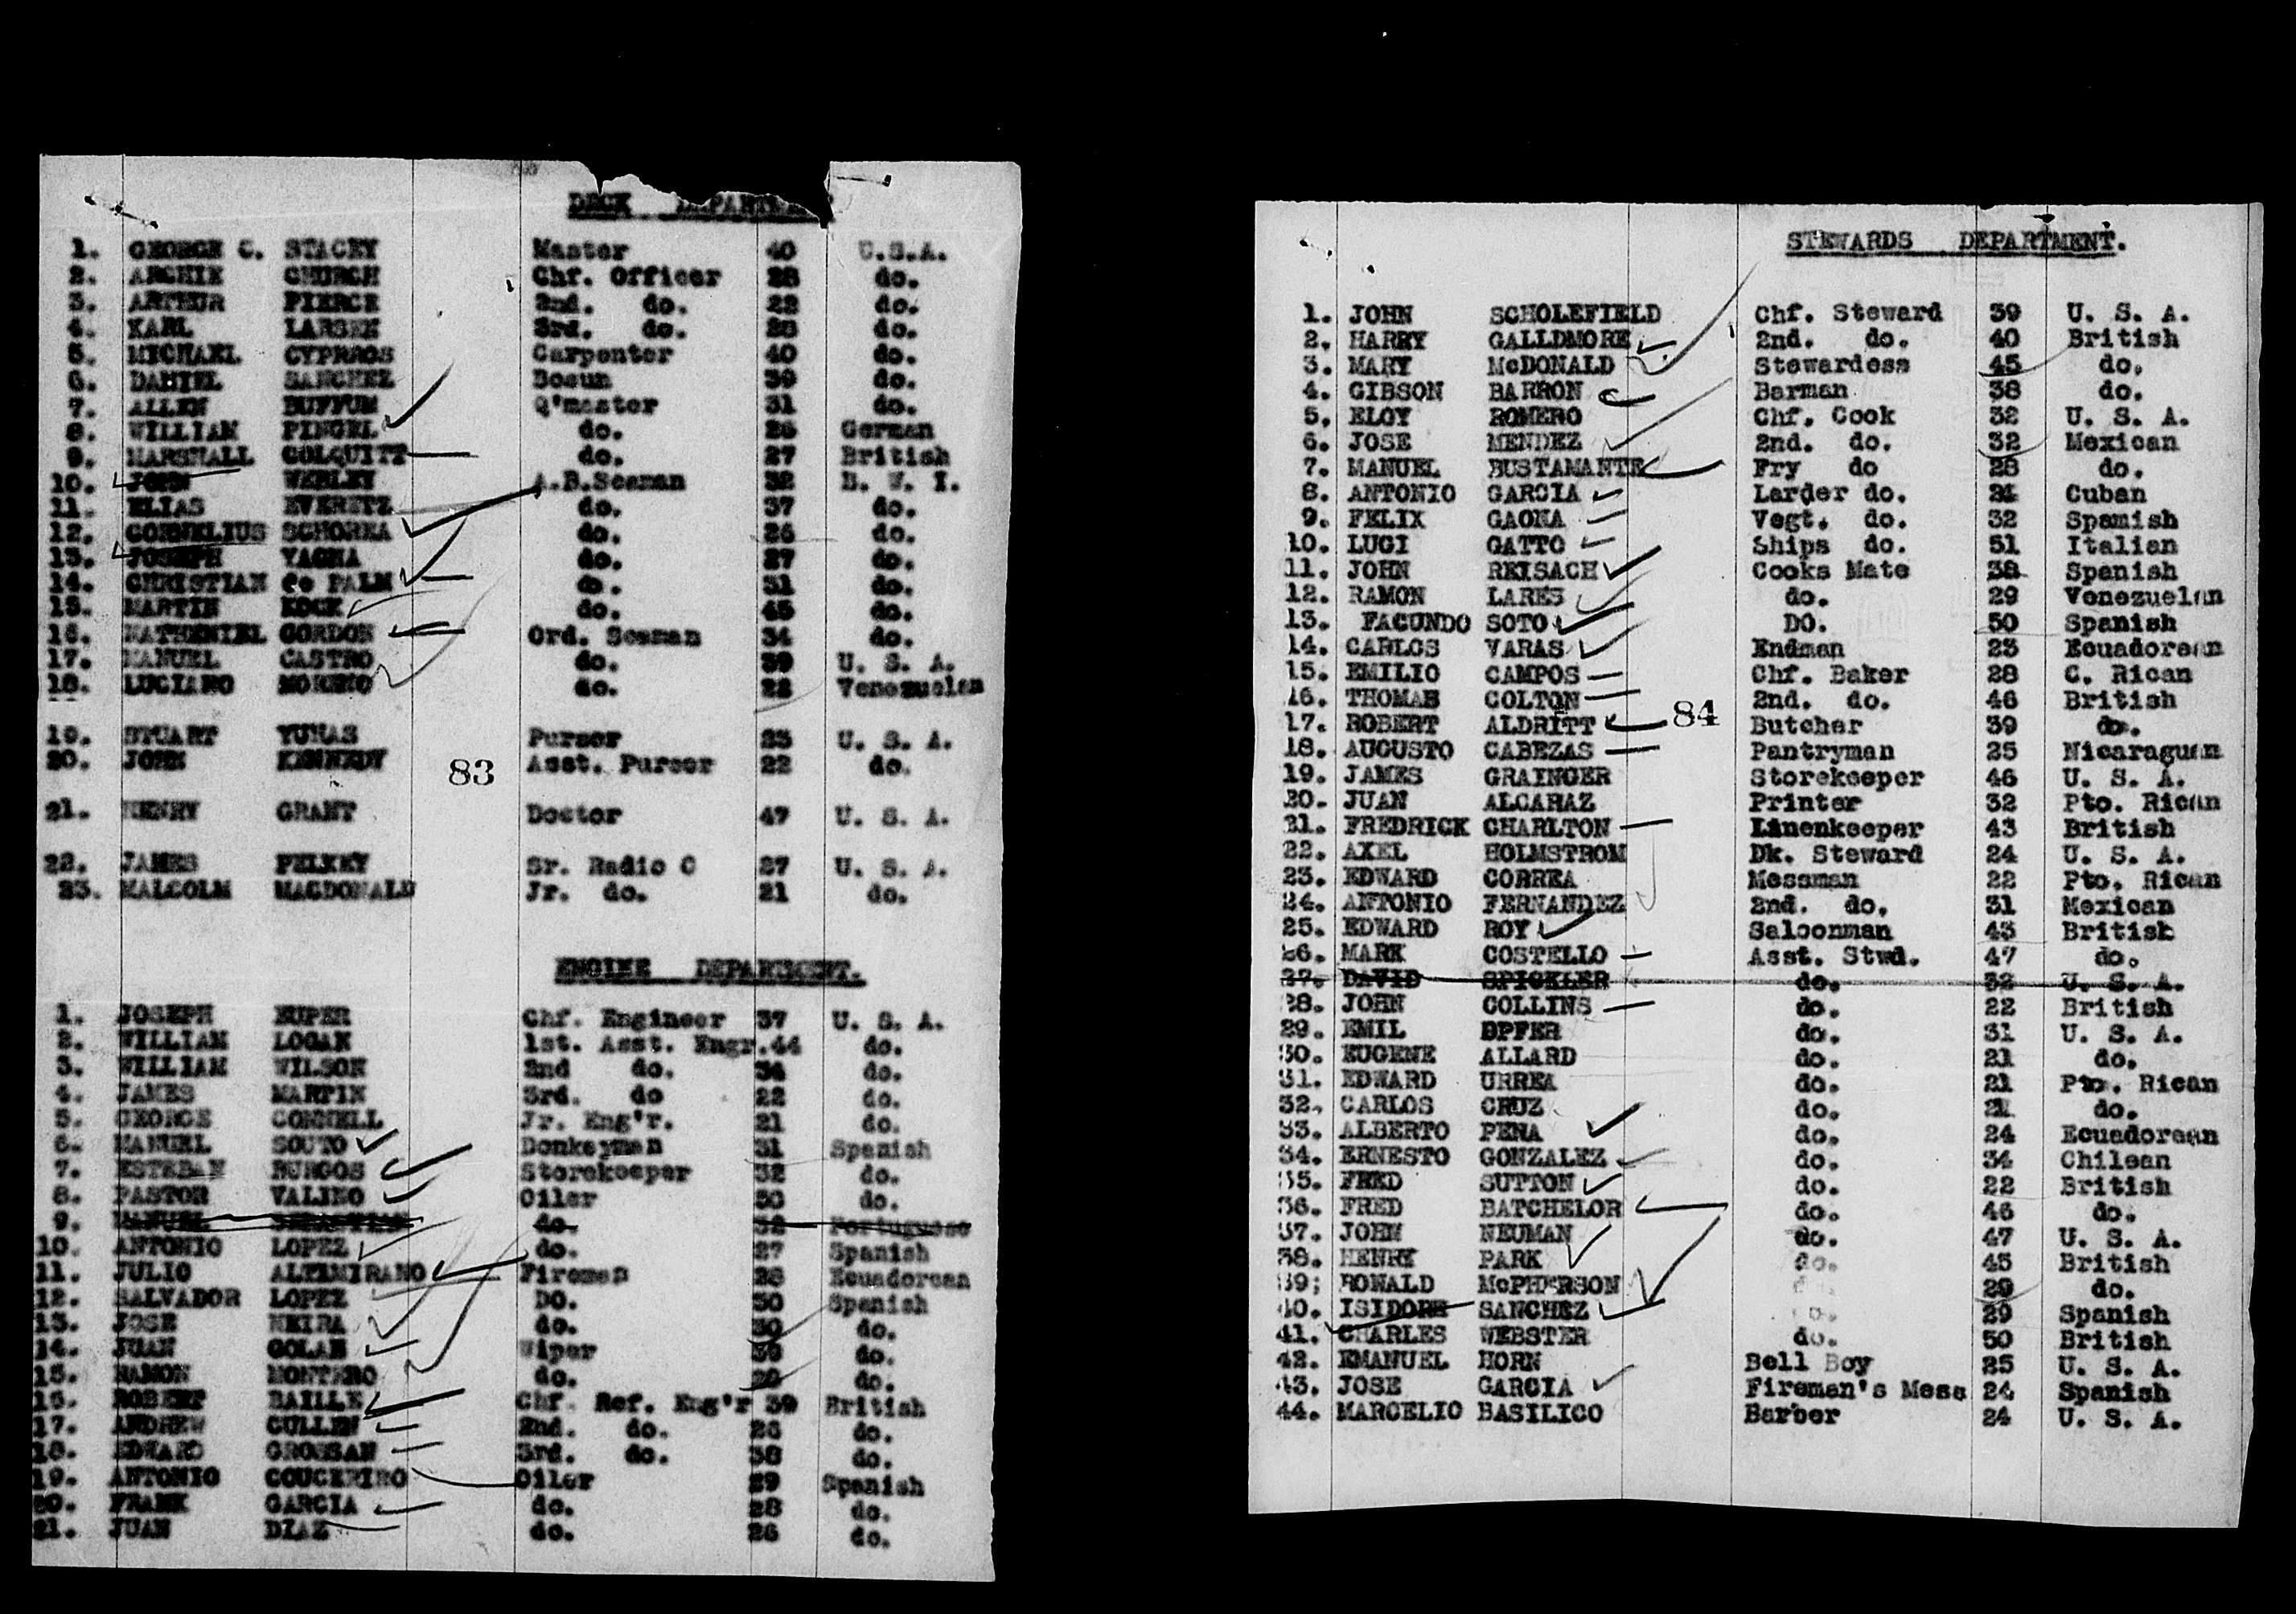 DECK DEPARTMENT
1. GEORGE C. STACEY Master 40 U.S.A.
2. ARCHIE CHURCH Chf. Officer 28 do.
3. ARTHUR PIERCE 2nd. do. 22 do.
4. KARL LARSEN 3rd. do. 28 do.
5. MICHAEL CYPRROS Carpenter 40 do.
6. DANIEL SANCHEZ Bosun 39 do.
7. ALLEN BUFFUM Q'master 31 do.
8. WILLIAM PINGEL do. 26 German
9. MARSHALL COLQUITT do. 27 British
10. JOHN WEBLEY A.B.Seaman 32 B. W. I.
11. ELIAS EVERETZ do. 37 do.
12. CORNELIUS SCHOREA do. 26 do.
13. JOSEPH YAGNA do. 27 do.
14. CHRISTIAN de PALM do. 31 do.
15. MARTIN KOCK do. 45 do.
16. NATHENIEL GORDON Ord. Seaman 34 do.
17. MANUEL CASTRO do. 39 U. S. A.
18. LUCIANO MORENO do. 22 Venezuelan
19. STUART YUHAS Purser 23 U. S. A.
20. JOHN KENNEDY Asst. Purser 22 do.
83
21. HENRY GRANT Doctor 47 U. S. A.
22. JAMES PELKEY Sr. Radio O 27 U. S. A.
23. MALCOLM MACDONALD Jr. do. 21 do.
ENGINE DEPARTMENT.
1. JOSEPH EUPER Chf. Engineer 37 U. S. A.
2. WILLIAM LOGAN 1st. Asst. Engr. 44 do.
3. WILLIAM WILSON 2nd do. 34 do.
4. JAMES MARTIN 3rd. do 22 do.
5. GEORGE CONNELL Jr. Eng'r. 21 do.
6. MANUEL SOUTO Donkeyman 31 Spanish
7. ESTEBAN BURGOS Storekeeper 32 do.
8. PASTOR VALINO Oiler 30 do.
9. MANUEL SEBASTIAN do. 32 Portuguese
10. ANTONIO LOPEZ do. 27 Spanish
11. JULIO ALTEMIRANO Fireman 28 Ecuadorean
12. SALVADOR LOPEZ DO. 30 Spanish
13. JOSE NEIRA do. 30 do.
14. JUAN GOLAN Wiper 39 do.
15. RAMON MONTERO do. 29 do.
16. ROBERT BAILLE Chf. Ref. Eng'r 39 British
17. ANDREW CULLEN 2nd. do. 26 do.
18. EDWARD GROSSAN 3rd. do. 38 do.
19. ANTONIO COUCEIRIRO Oiler 29 Spanish
20. FRANK GARCIA do. 28 do.
21. JUAN DIAZ do. 26 do.
STEWARDS DEPARTMENT.
1. JOHN SCHOLEFIELD Chf. Steward 39 U. S. A.
2. HARRY GALLDMORE 2nd. do. 40 British
3. MARY McDONALD Stewardess 45 do.
4. GIBSON BARRON Barman 38 do.
5. ELOY ROMERO Chf. Cook 32 U. S. A.
6. JOSE MENDEZ 2nd. do. 32 Mexican
7. MANUEL BUSTAMANTE Fry do 28 do.
8. ANTONIO GARCIA Larder do. 24 Cuban
9. FELIX GAONA Vegt. do. 32 Spanish
10. LUGI GATTO Ships do. 51 Italian
11. JOHN REISACH Cooks Mate 38 Spanish
12. RAMON LARES do. 29 Venezuelan
13. FACUNDO SOTO DO. 50 Spanish
14. CARLOS VARAS Endman 23 Ecuadorean
15. EMILIO CAMPOS Chf. Baker 28 C. Rican
16. THOMAS COLTON 2nd. do. 46 British
84
17. ROBERT ALDRITT Butcher 39 do.
18. AUGUSTO CABEZAS Pantryman 25 Nicaraguan
19. JAMES GRAINGER Storekeeper 46 U. S. A.
20. JUAN ALCARAZ Printer 32 Pto. Rican
21. FREDRICK CHARLTON Linenkeeper 43 British
22. AXEL HOLMSTROM Dk. Steward 24 U. S. A.
23. EDWARD CORREA Messman 22 Pto. Rican
24. ANTONIO FERNANDEZ 2nd. do. 31 Mexican
25. EDWARD ROY Saloonman 43 British
26. MARK COSTELLO Asst. Stwd. 47 do.
27. DAVID SPICKLER do. 32 U. S. A.
28. JOHN COLLINS do. 22 British
29. EMIL DPFER do. 31 U. S. A.
30. EUGENE ALLARD do. 21 do.
31. EDWARD URREA do. 21 Pto. Rican
32. CARLOS CRUZ do. 21 do.
33. ALBERTO PENA do. 24 Ecuadorean
34. ERNESTO GONZALEZ do. 34 Chilean
35. FRED SUTTON do. 22 British
36. FRED BATCHELOR do. 46 do.
37. JOHN NEUMAN do. 47 U. S. A.
38. HENRY PARK do. 45 British
39; RONALD McPHERSON 29 do.
40. ISIDORE SANCHEZ 29 Spanish
41. CHARLES WEBSTER do. 50 British
42. EMANUEL HORN Bell Boy 25 U. S. A.
43. JOSE GARCIA Fireman's Mess 24 Spanish
44. MARCELIO BASILICO Barber 24 U. S. A.